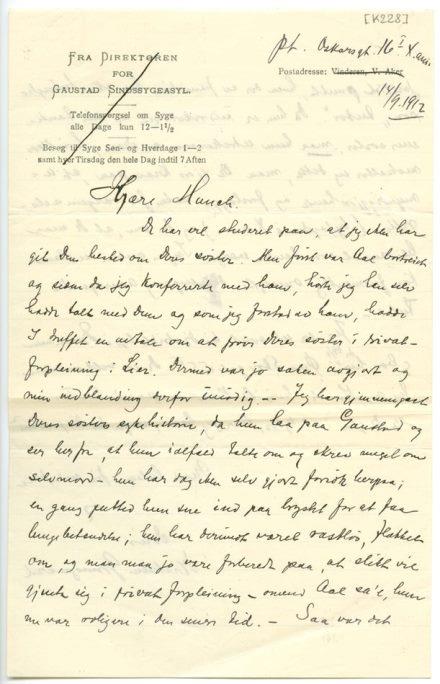 [K228]
pt. Oskarsgt. 16 I X.ania
FRA DIREKTØREN
FOR
GAUSTAD SINDSSYGEASYL.
Postadresse: Vinderen, V. Aker
14/9. 1912
Telefonspørgsel om Syge
alle Dage kun 12—1½
Besøg til Syge Søn- og Hverdage 1—2
samt hver Tirsdag den hele Dag indtil 7 Aften
Kjære Munch.
De har vel studeret paa, at jeg ikke har
git Dem besked om Deres søster. Men først var Aal bortreist
og siden da jeg konfererte med ham, hørte jeg han selv
hadde talt med Dem og som jeg forstod av ham, hadde
I truffet en avtale om at prøve Deres søster i privat-
forpleining i Lier. Dermed var jo saken avgjort og
min indblanding derfor unødig — . Jeg har gjennemgaat
Deres søsters sykehistorie, da hun laa paa Gaustad og
ser herfra at hun ialfald talte om og skrev noget om
selvmord — hun har dog ikke selv gjort forsøk herpaa;
en gang puttet hun sne ind paa brystet for at faa
lungebetændelse; hun har derimot været rastløs, flakket
om og man maa jo være forberedt paa, at slikt vil
gjenta sig i privat forpleining — omend Aal sa'e, hun
nu var roligere i den senere tid. — Saa var det